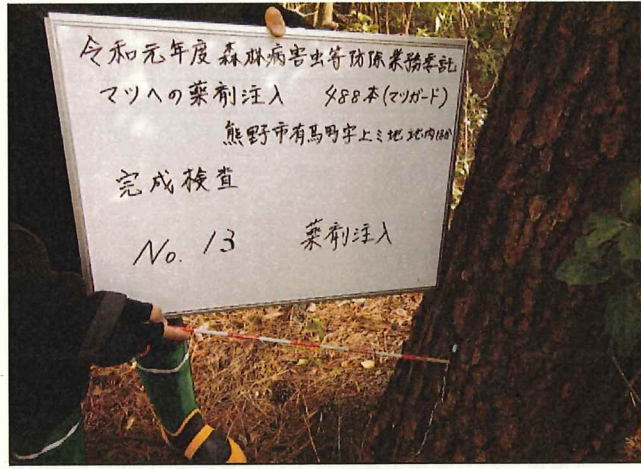 令和元年度 森林病害虫等防除業務委託
マツへの薬剤注入 488本(マツガード)
熊野市有馬町字上ミ地 地内ほか
完成検査
No. 13 薬剤注入